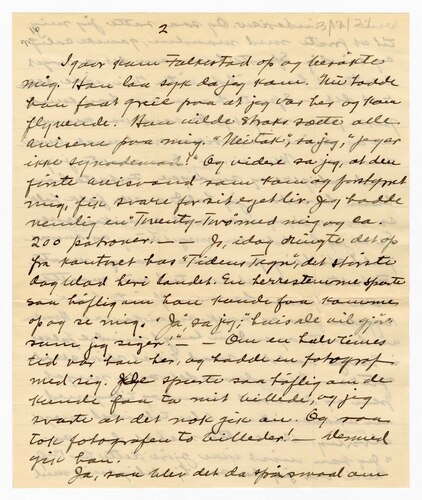 2
Igaar kom Falkestad op og besøkte
mig. Han laa syk da jeg kom. Nu hadde
han faat greie paa at jeg var her og kom
flyvende. Han vilde straks sætte alle
aviserne paa mig. "Nei tak", sa jeg, "jeg er
ikke synodemand!" Og videre sa jeg, at den
første avismand som kom og forstyrret
mig, fik svare for sit eget liv. Jeg hadde
nemlig en "Twenty-Two" med mig og ca.
200 patroner. — — Jo, idag ringte det op
fra kontoret hos "Tidens Tegn", det største
dagblad her i landet. En herrestemme spurte
saa høflig om han kunde faa komme
op og se mig. "Ja", sa jeg, "hvis de vil gjøre
som jeg siger!" — Om en halv times
tid var han her, og hadde en fotograf
med sig. De spurte saa høflig om de
kunde faa ta mit billede, og jeg
svarte at det nok gik an. Og saa
tok fotografen to billeder. — Dermed
gik han.
Ja, saa blev det da spørsmaal om